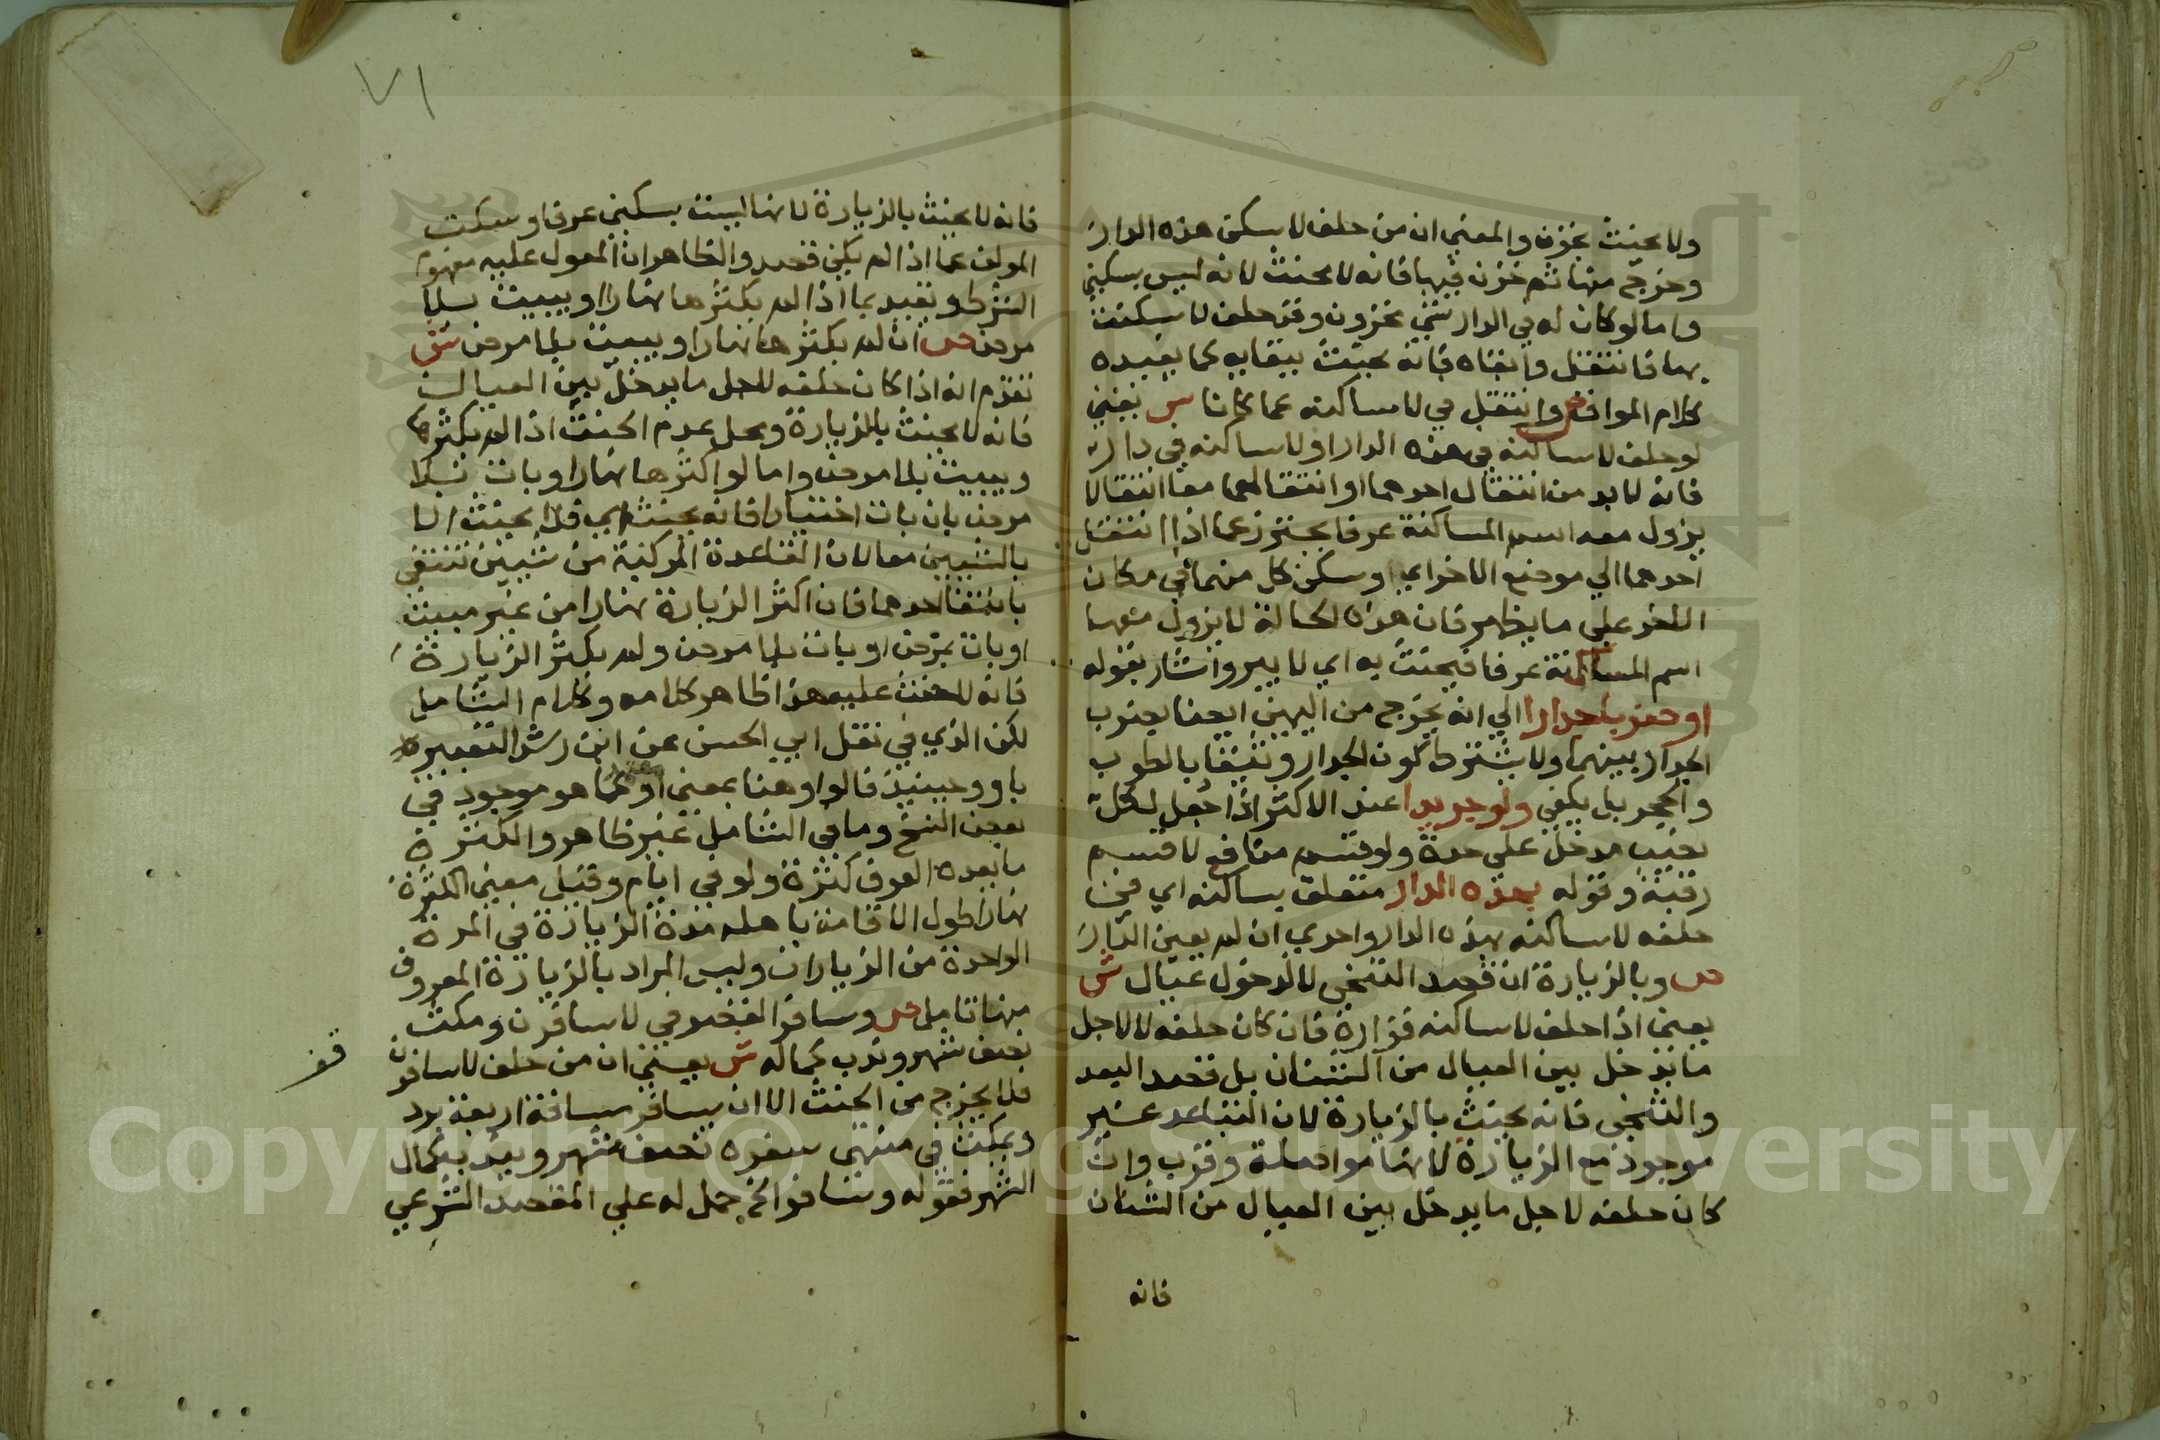 ولا يحنث بخزن والمعني ان من حلف لا سكن هذه الدار
وخرج منها ثم خزن فيها فانه لا يحنث لانه ليس بسكني
واما لو كان له في الدار شي مخزون وقد حلف لا سكنت
بها فانتقل وابقاه فانه يحنث ببقايه كما يفيده
كلام المواق ص وانتقل في لا ساكنه عما كانا ش يعني
لو حلف لا ساكنه في هذه الدار او لا ساكنه في دار
فانه لا بد من انتقال احدهما او انتقالهما معا انتقالا
يزول معه اسم المساكنة عرفا يحترز عما اذا انتقل
احدهما الي موضع الاخر اي وسكن كل منهما في مكان
الاخر علي ما يظهر فان هذه الحالة لا يزول معها
اسم المساكنة عرفا فيحنث به اي لا يبر واشار بقوله
او ضربا جدارا الي انه يخرج من اليمين ايضا بضرب
الجدار بينهما ولا يشترط كون الجدار وثيقا بالطوب
والحجر بل يكفي ولو جريدا عند الاكثر اذا جعل لكل
نصيب مدخل علي حدة ولو قسم منافع لا قسم
رقبة وقوله بهذه الدار متعلق بساكنه اي في
حلفه لا ساكنه بهذه الدار واحري ان لم يعين الدار
ص وبالزيارة ان قصد التنحي لا لدخول عيال ش
يعني اذا حلف لا ساكنه فزاره فان كان حلفه لا لاجل
ما يدخل بين العيال من الشنان بل قصد البعد
والتنحي فانه يحنث بالزيارة لان التباعد غير
موجود مع الزيارة لانها مواصلة وقرب وان
كان حلفه لاجل ما يدخل بين العيال من الشنان
فانه
٧١
فانه لا يحنث بالزيارة لانها ليست بسكني عرفا وسكت
المولف عما اذا لم يكن قصد والظاهر ان المعول عليه مفهوم
الشرط ويقيد بما اذا لم يكثرها نهارا ويبيت بلا
مرض ص ان لم يكثرها نهارا ويبيت بلا مرض ش
تقدم انه اذا كان حلفه لاجل ما يدخل بين العيال
فانه لا يحنث بالزيارة ومحل عدم الحنث اذا لم يكثرها
ويبيت بلا مرض واما لو اكثرها نهارا وبات بلا
مرض بان بات اختيارا فانه يحنث اي فلا يحنث الا
بالشيين معا لان القاعدة المركبة من شيين تنتفي
بانتفا احدهما فان اكثر الزيارة نهارا من غير مبيت
او بات بمرض او بات بلا مرض ولم يكثر الزيارة
فانه لا حنث عليه هذا ظاهر كلامه وكلام الشامل
لكن الذي في نقل ابي الحسن عن ابن رشد التعبير
باو وحينيذ فالواو هنا بمعني او كما هو موجود في
بعض النسخ وما في الشامل غير ظاهر والكثرة
ما يعده العرف كثرة ولو في ايام وقيل معني الكثرة
نهارا طول الاقامة باهله مدة الزيارة في المرة
الواحدة من الزيارات وليس المراد بالزيارة المعروف
منها تامل ص وسافر القصر في لا سافرن ومكث
نصف شهر وندب كماله ش يعني ان من حلف لا سافرن
فلا يخرج من الحنث الا ان يسافر مسافة اربعة برد
ويمكث في منتهي سفره نصف شهر ويندب كمال
الشهر فقوله وسافر الخ حمل له علي المقصد الشرعي
قف
Copyright © King Saud University